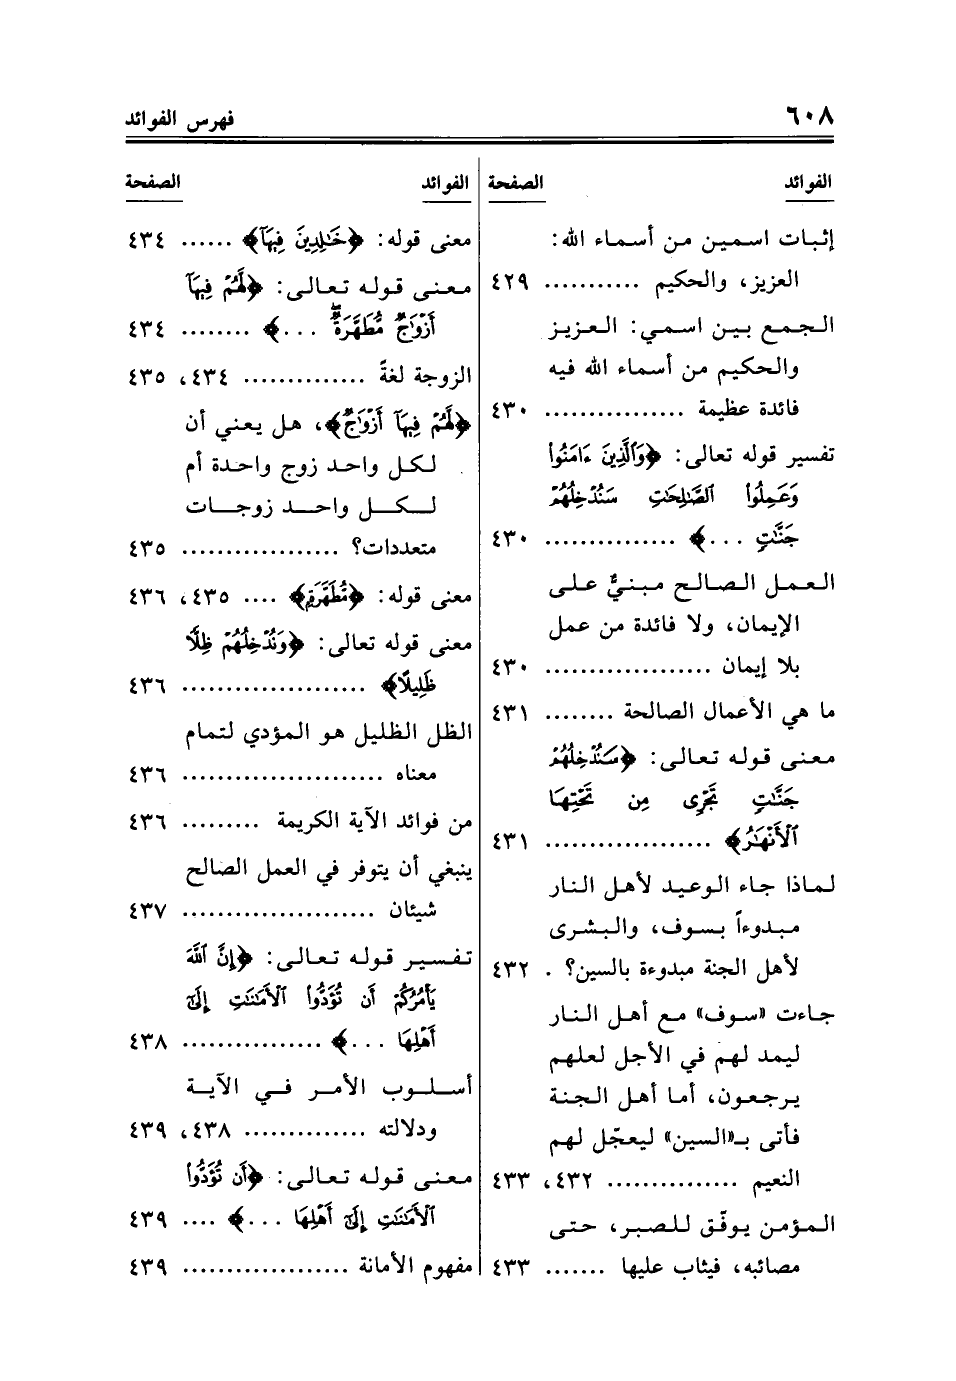 ٦٠٨
فهرس الفوائد
الفوائد الصفحة
إثبات اسمين من أسماء الله:
العزيز، والحكيم ........... ٤٢٩
الجمع بين اسمي: العزيز
والحكيم من أسماء الله فيه
فائدة عظيمة ................ ٤٣٠
تفسير قوله تعالى: ﴿وَٱلَّذِينَ ءَامَنُوا۟
وَعَمِلُوا۟ ٱلصَّـٰلِحَـٰتِ سَنُدْخِلُهُمْ
جَنَّـٰتٍ ...﴾ ............... ٤٣٠
العمل الصالح مبنيٌّ على
الإيمان، ولا فائدة من عمل
بلا إيمان ................... ٤٣٠
ما هي الأعمال الصالحة ........ ٤٣١
معنى قوله تعالى: ﴿سَنُدْخِلُهُمْ
جَنَّـٰتٍ تَجْرِى مِن تَحْتِهَا
ٱلْأَنْهَـٰرُ﴾ ................... ٤٣١
لماذا جاء الوعيد لأهل النار
مبدوءاً بسوف، والبشرى
لأهل الجنة مبدوءة بالسين؟ . ٤٣٢
جاءت «سوف» مع أهل النار
ليمد لهم في الأجل لعلهم
يرجعون، أما أهل الجنة
فأتى بـ«السين» ليعجّل لهم
النعيم ............... ٤٣٢، ٤٣٣
المؤمن يوفّق للصبر، حتى
مصائبه، فيثاب عليها ....... ٤٣٣
الفوائد الصفحة
معنى قوله: ﴿خَـٰلِدِينَ فِيهَآ﴾ ...... ٤٣٤
معنى قوله تعالى: ﴿لَهُمْ فِيهَآ
أَزْوَٰجٌ مُّطَهَّرَةٌ ...﴾ ........ ٤٣٤
الزوجة لغةً .............. ٤٣٤، ٤٣٥
﴿لَهُمْ فِيهَآ أَزْوَٰجٌ﴾، هل يعني أن
لكل واحد زوج واحدة أم
لكل واحد زوجات
متعددات؟ .................. ٤٣٥
معنى قوله: ﴿مُّطَهَّرَةٌ﴾ .... ٤٣٥، ٤٣٦
معنى قوله تعالى: ﴿وَنُدْخِلُهُمْ ظِلًّا
ظَلِيلًا﴾ ..................... ٤٣٦
الظل الظليل هو المؤدي لتمام
معناه ....................... ٤٣٦
من فوائد الآية الكريمة ......... ٤٣٦
ينبغي أن يتوفر في العمل الصالح
شيئان ...................... ٤٣٧
تفسير قوله تعالى: ﴿إِنَّ ٱللَّهَ
يَأْمُرُكُمْ أَن تُؤَدُّوا۟ ٱلْأَمَـٰنَـٰتِ إِلَىٰٓ
أَهْلِهَا ...﴾ ................ ٤٣٨
أسلوب الأمر في الآية
ودلالته .............. ٤٣٨، ٤٣٩
معنى قوله تعالى: ﴿أَن تُؤَدُّوا۟
ٱلْأَمَـٰنَـٰتِ إِلَىٰٓ أَهْلِهَا ...﴾ .... ٤٣٩
مفهوم الأمانة ................... ٤٣٩